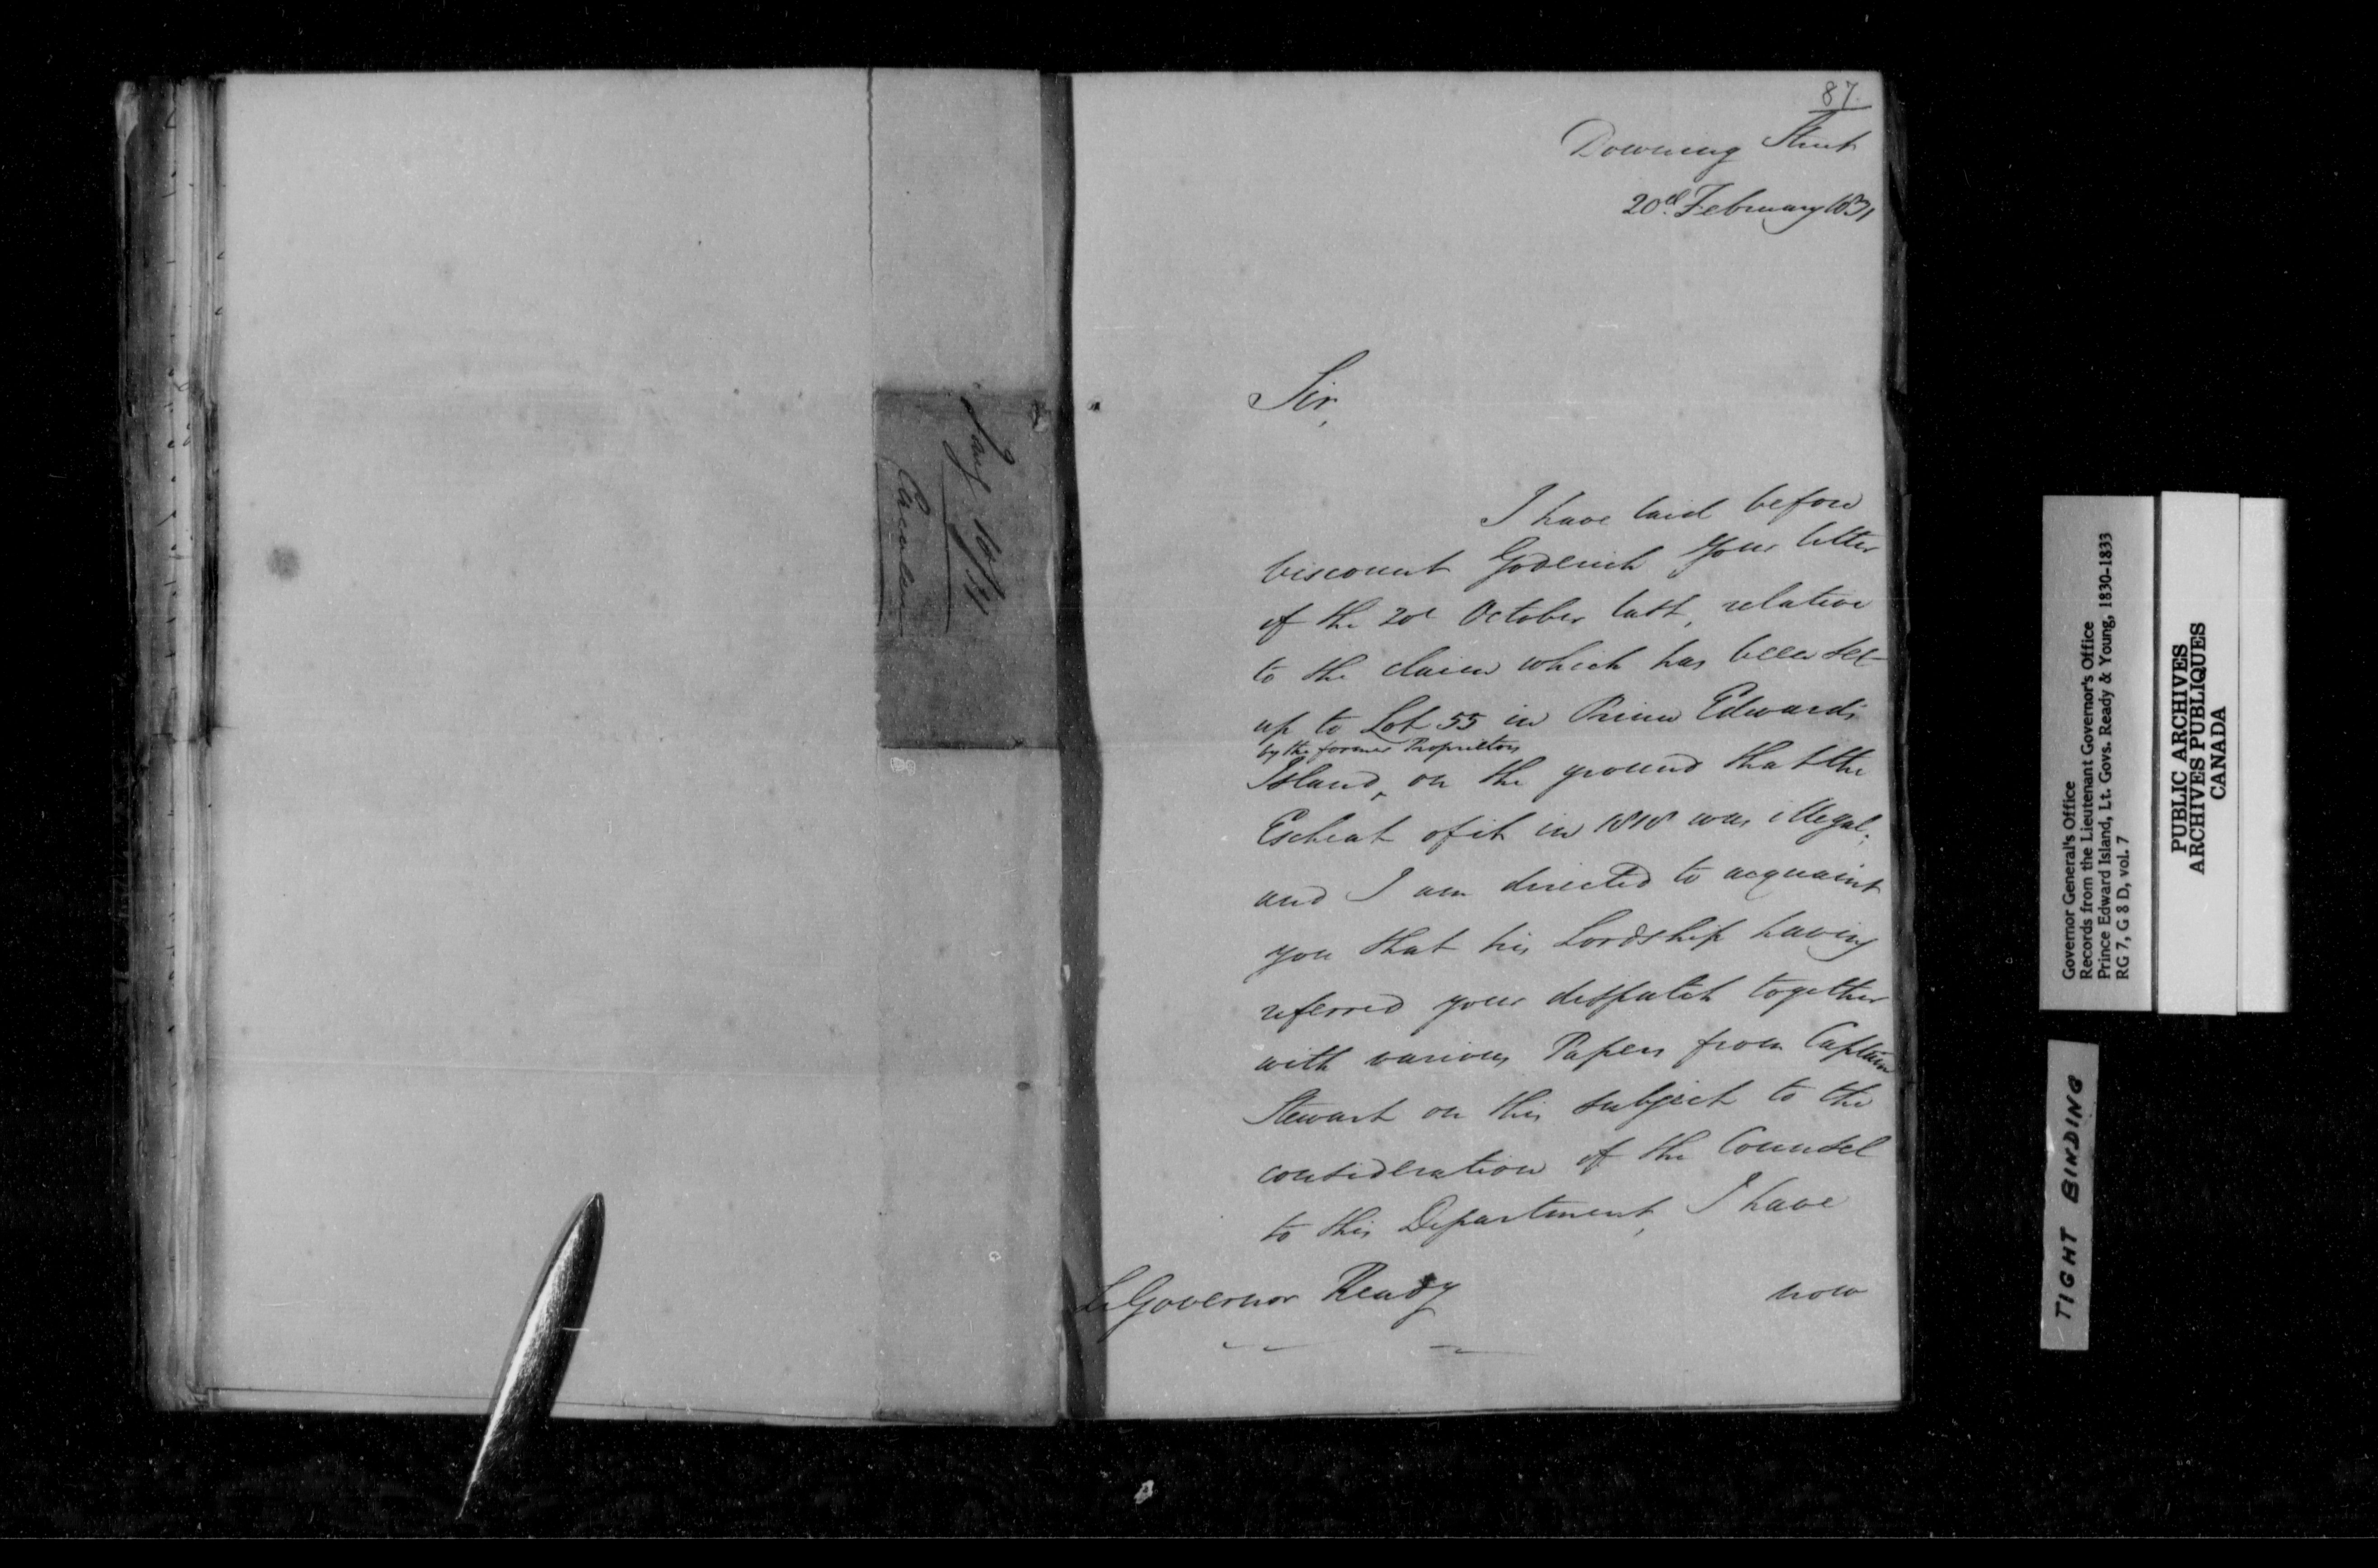 Jany 1831
Circular
87.
Downing Street
20th February 1831
Sir,
I have laid before
Viscount Goderich your letter
of the 20th October last, relative
to the claim which has been set
up to Lot 55 in Prince Edward's
by the former Proprietors
Island, on the ground that the
Escheat of it in 1818 was illegal;
and I am directed to acquaint
you that his Lordship having
referred your despatch together
with various Papers from Captain
Stewart on this subject to the
consideration of the Counsel
to this Department, I have
now
Lt Governor Ready
Governor General's Office
Records from the Lieutenant Governor's Office
Prince Edward Island, Lt. Govs. Ready & Young, 1830-1833
RG 7, G 8 D, vol. 7
PUBLIC ARCHIVES
ARCHIVES PUBLIQUES
CANADA
TIGHT BINDING